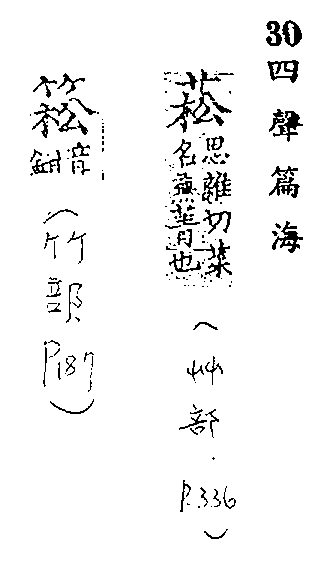 30四聲篇海
菘
思雖切菜
名蕪菁也
(艸部.P.336)
音
鉗
(竹部P.187)